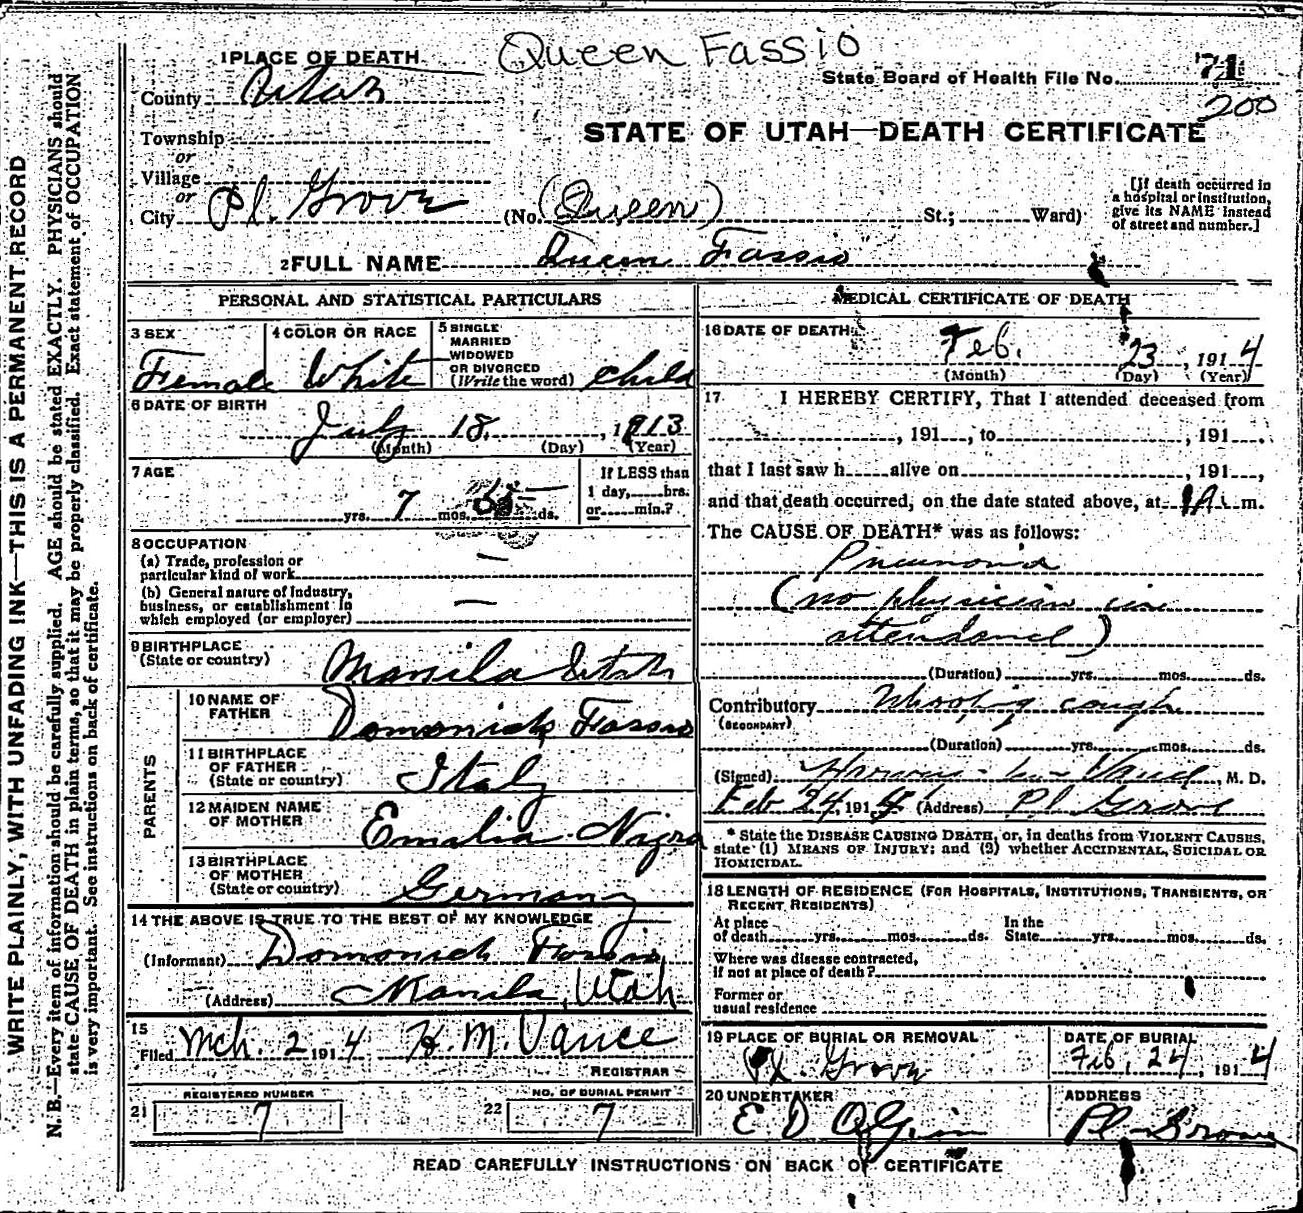 Queen Fassio
1 PLACE OF DEATH
State Board of Health File No. 71
200
County Utah
STATE OF UTAH—DEATH CERTIFICATE
Township
or
Village
or
City Pl. Grove (No. (Queen) St.; Ward)
[If death occurred in
a hospital or institution,
give its NAME instead
of street and number.]
2 FULL NAME Queen Fassio
PERSONAL AND STATISTICAL PARTICULARS
3 SEX
Female
4 COLOR OR RACE
White
5 SINGLE
MARRIED
WIDOWED
OR DIVORCED
(Write the word) Child
6 DATE OF BIRTH
July 18, 1913
(Month) (Day) (Year)
7 AGE
yrs. 7 mos. ds.
If LESS than
1 day, hrs.
or min.?
8 OCCUPATION
(a) Trade, profession or
particular kind of work —
(b) General nature of Industry,
business, or establishment in
which employed (or employer) —
9 BIRTHPLACE
(State or country) Manila Utah
PARENTS
10 NAME OF
FATHER Domonick Fassio
11 BIRTHPLACE
OF FATHER
(State or country) Italy
12 MAIDEN NAME
OF MOTHER Emalia Nigra
13 BIRTHPLACE
OF MOTHER
(State or country) Germany
14 THE ABOVE IS TRUE TO THE BEST OF MY KNOWLEDGE
(Informant) Domonick Fassio
(Address) Manila, Utah
15
Filed Mch. 2 1914 H. M. Vance
REGISTRAR
REGISTERED NUMBER
21 7
NO. OF BURIAL PERMIT
22 7
MEDICAL CERTIFICATE OF DEATH
16 DATE OF DEATH
Feb. 23, 1914
(Month) (Day) (Year)
17. I HEREBY CERTIFY, That I attended deceased from
, 191 , to , 191 ,
that I last saw h alive on , 191 ,
and that death occurred, on the date stated above, at 1 A. m.
The CAUSE OF DEATH* was as follows:
Pneumonia
(no physician in
attendance)
(Duration) yrs. mos. ds.
Contributory Whooping cough
(SECONDARY)
(Duration) yrs. mos. ds.
(Signed) M. D.
Feb 24, 191 (Address) Pl Grove
* State the DISEASE CAUSING DEATH, or, in deaths from VIOLENT CAUSES,
state (1) MEANS OF INJURY; and (2) whether ACCIDENTAL, SUICIDAL OR
HOMICIDAL.
18 LENGTH OF RESIDENCE (FOR HOSPITALS, INSTITUTIONS, TRANSIENTS, OR
RECENT RESIDENTS)
At place
of death yrs. mos. ds.
In the
State yrs. mos. ds.
Where was disease contracted,
if not at place of death?
Former or
usual residence
19 PLACE OF BURIAL OR REMOVAL
Pl. Grove
DATE OF BURIAL
Feb. 24, 1914
20 UNDERTAKER
E D Olpin
ADDRESS
Pl Grove
READ CAREFULLY INSTRUCTIONS ON BACK OF CERTIFICATE
WRITE PLAINLY, WITH UNFADING INK—THIS IS A PERMANENT RECORD
N. B.—Every item of information should be carefully supplied. AGE should be stated EXACTLY. PHYSICIANS should
state CAUSE OF DEATH in plain terms, so that it may be properly classified. Exact statement of OCCUPATION
is very important. See instructions on back of certificate.